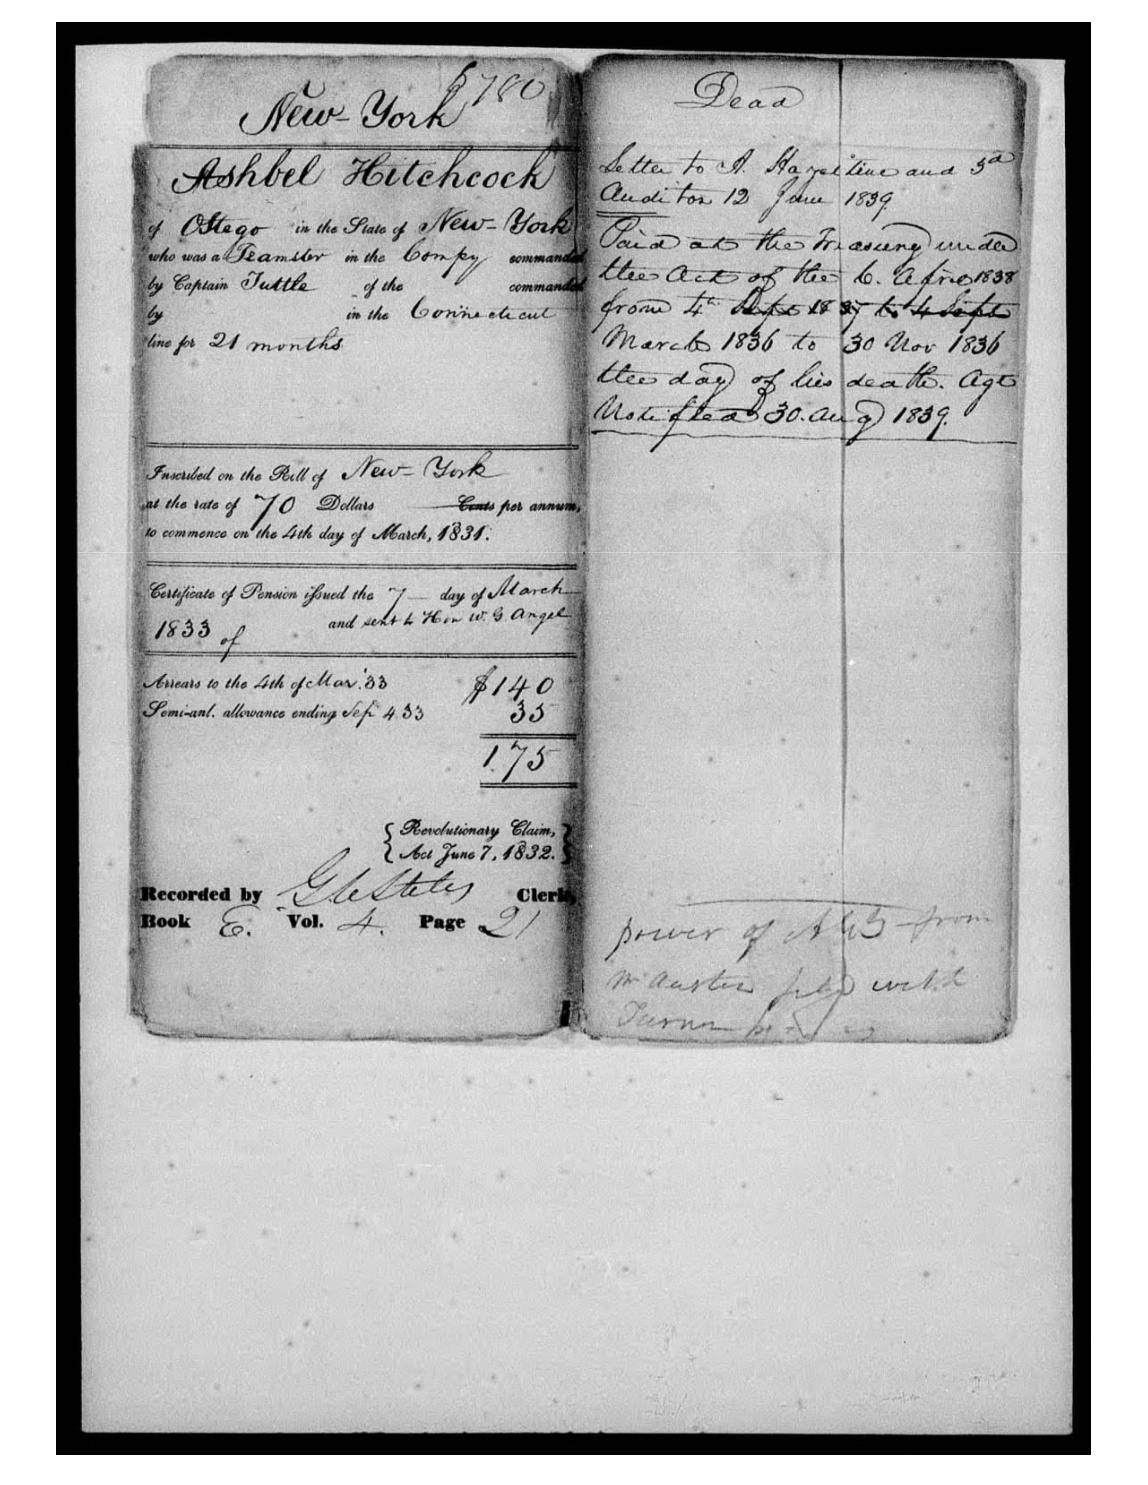 $780
New-York
Ashbel Hitchcock
of Ostego in the State of New-York
who was a Teamster in the Compy commanded
by Captain Tuttle of the commanded
by in the Connecticut
line for 21 months
Inscribed on the Roll of New-York
at the rate of 70 Dollars Cents per annum,
to commence on the 4th day of March, 1831.
Certificate of Pension issued the 7 day of March
1833 and sent to Hon W. G. Angel
of
Arrears to the 4th of Mar. '33 $140
Semi-anl. allowance ending Sep 4. 33 35
175
{ Revolutionary Claim, }
{ Act June 7, 1832. }
Recorded by Clerk,
Book E. Vol. 4. Page 21
Dead
Letter to A. Hazeltine and 3d
Auditor 12 June 1839.
Paid at the Treasury under
the Act of the 6. April 1838
from 4th Sept 1837 to 4 Sept
March 1836 to 30 Nov 1836
the day of his death. Agt
Notified 30. Aug 1839.
power of from
Mr Austin with
Turner